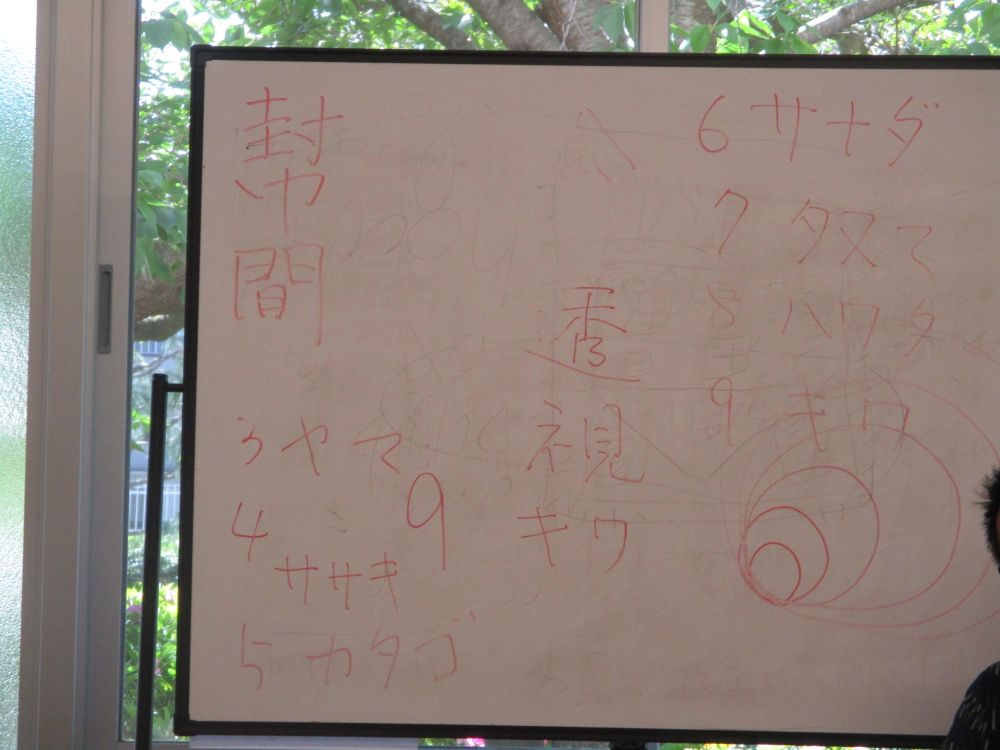 幇間
3 ヤマ
4 ササキ
9
5 カタゴ
透視
キウ
6 サナダ
7 タヌマ
8 ハワタ
9 キワ